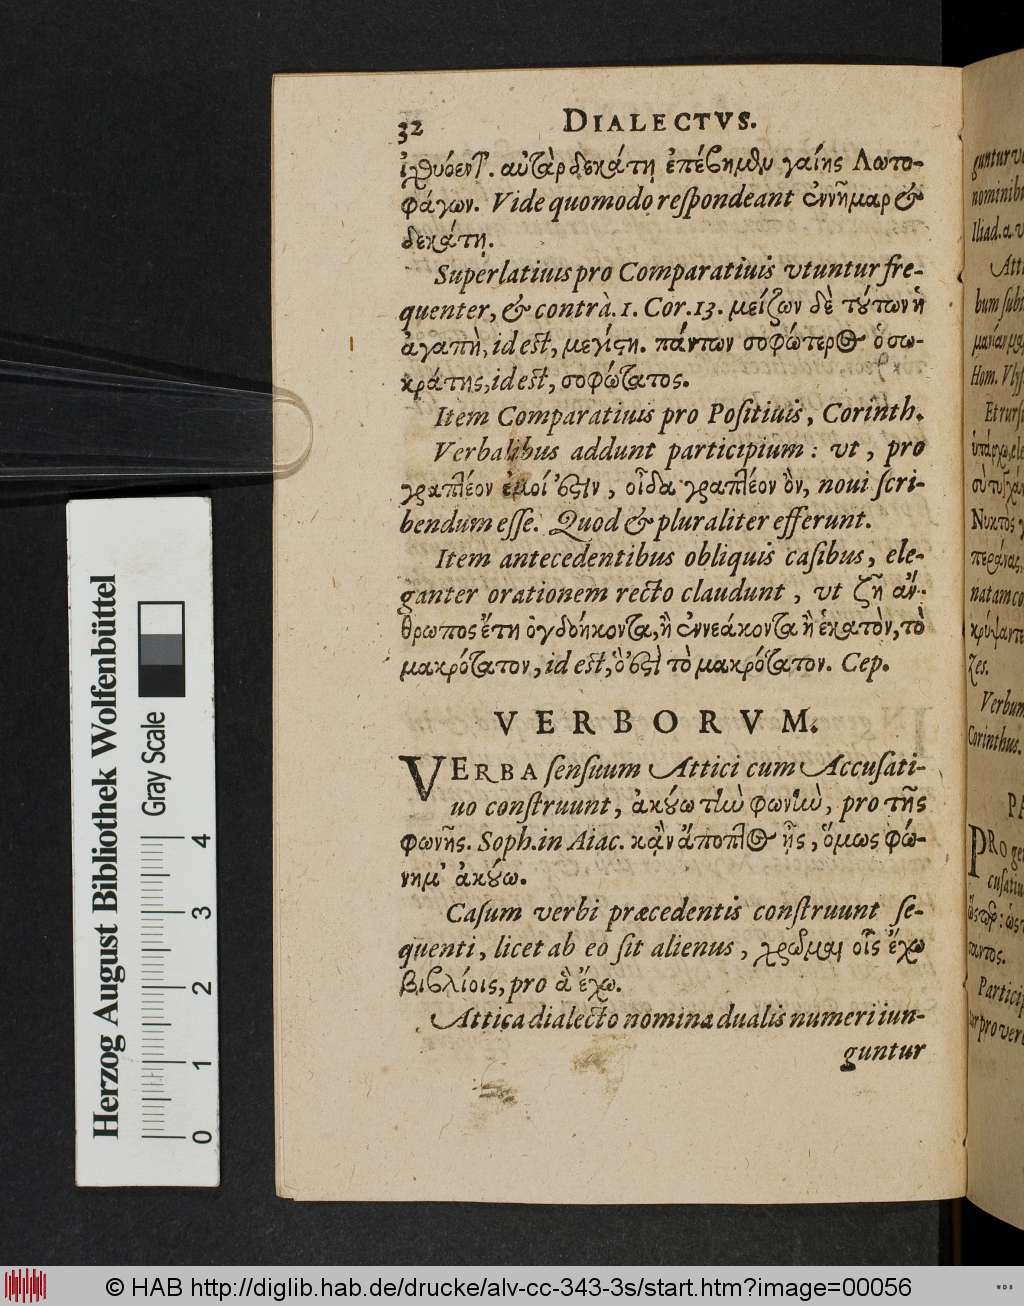 32 DIALECTVS.
ἰχθυόεντ'. αὐτὰρ δεκάτῃ ἐπέβημλυ γαίης Λωτο-
φάγων. Vide quomodo reſpondeant ἐννῆμαρ &
δεκάτῃ.
Superlatiuis pro Comparatiuis vtuntur fre-
quenter, & contrà. 1. Cor. 13. μείζων δὲ τούτων ἡ
ἀγαπὴ, id est, μεγίστη. πάντων σοφώτερος ὁ σω-
κράτης, id est, σοφώτατος.
Item Comparatiuis pro Poſitiuis, Corinth.
Verbalibus addunt participium: vt, pro
γραπτέον ἐμοί ἐστιν, οἶδα γραπτέον ὂν, noui ſcri-
bendum eſſe. Quod & pluraliter efferunt.
Item antecedentibus obliquis caſibus, ele-
ganter orationem recto claudunt, vt ζῇ ἄν-
θρωπος ἔτη ὀγδοήκοντα, ἢ ἐννεάκοντα ἢ ἑκατὸν, τὸ
μακρότατον, id est, ὅ ἐστι τὸ μακρότατον. Cep.
VERBORVM.
VERBA ſenſuum Attici cum Accuſati-
uo conſtruunt, ἀκούω τὴν φωνὴν, pro τῆς
φωνῆς. Soph. in Aiac. κᾂν ἄποπτος ᾖς, ὅμως φώ-
νημ' ἀκούω.
Caſum verbi præcedentis conſtruunt ſe-
quenti, licet ab eo ſit alienus, χρῶμαι οἷς ἔχω
βιβλίοις, pro ἃ ἔχω.
Attica dialecto nomina dualis numeri iun-
guntur
guntur
nominibu
Iliad. α.
Atti
bum ſubi
Hom. Vlyſ
Et rurſ
Νυκτὸς
natam co
Verbum
Corinthus.
PA
PRO ge
cuſatiu
παντος.
Particip
tur pro ver
Herzog August Bibliothek Wolfenbüttel
Gray Scale
0 1 2 3 4
© HAB http://diglib.hab.de/drucke/alv-cc-343-3s/start.htm?image=00056